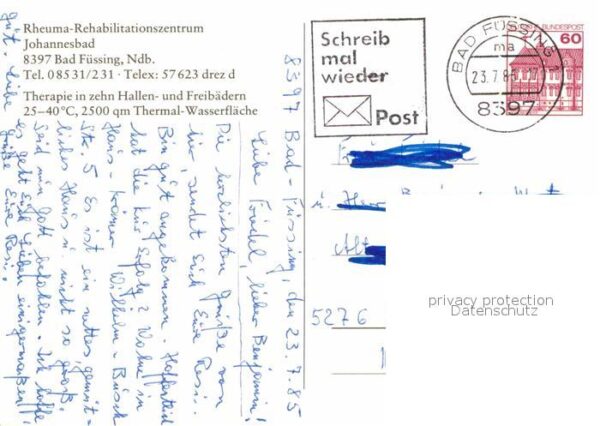 Rheuma-Rehabilitationszentrum
Johannesbad
8397 Bad Füssing, Ndb.
Tel. 08531/231 · Telex: 57623 drez d
Therapie in zehn Hallen- und Freibädern
25–40°C, 2500 qm Thermal-Wasserfläche
Schreib
mal
wieder
Post
BAD FÜSSING
ma
23.7.85
8397
BUNDESPOST
60
8397 Bad-Füssing, den 23.7.85
Liebe Friedel, lieber Benjamin!
Die herzlichsten Grüße von
hier, sendet Euch Eure Resi.
Bin gut angekommen. Hoffentlich
hat die Kur Erfolg? Wohne im
Haus Wilhelm-Busch
Str. 5 Es ist ein nettes, gemüt-
liches Haus u. nicht so groß.
Seid nun Gott befohlen. Ich hoffe
es geht Euch Lieben einigermaßen
gut. Liebe
Grüße Eure Resi.
u. Herr
Alt
5276
privacy protection
Datenschutz